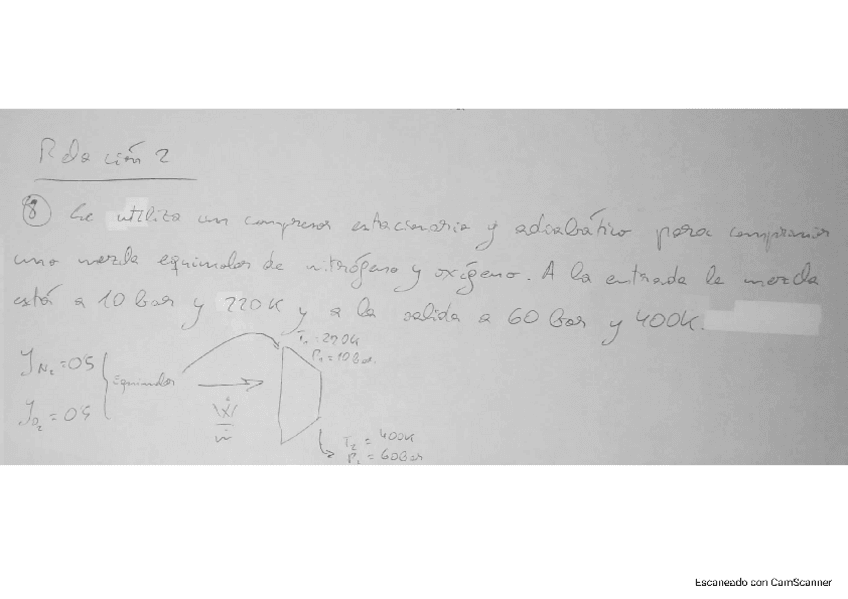 Relación 2
⑧ Se utiliza un compresor estacionario y adiabático para comprimir
una mezcla equimolar de nitrógeno y oxígeno. A la entrada la mezcla
está a 10 bar y 220K y a la salida a 60 bar y 400K.
T₁ = 220K
P₁ = 10 Bar.
y N₂ = 0'5
Equimolar
y O₂ = 0'5
Ẇ
ṁ
T₂ = 400K
P₂ = 60Bar
Escaneado con CamScanner